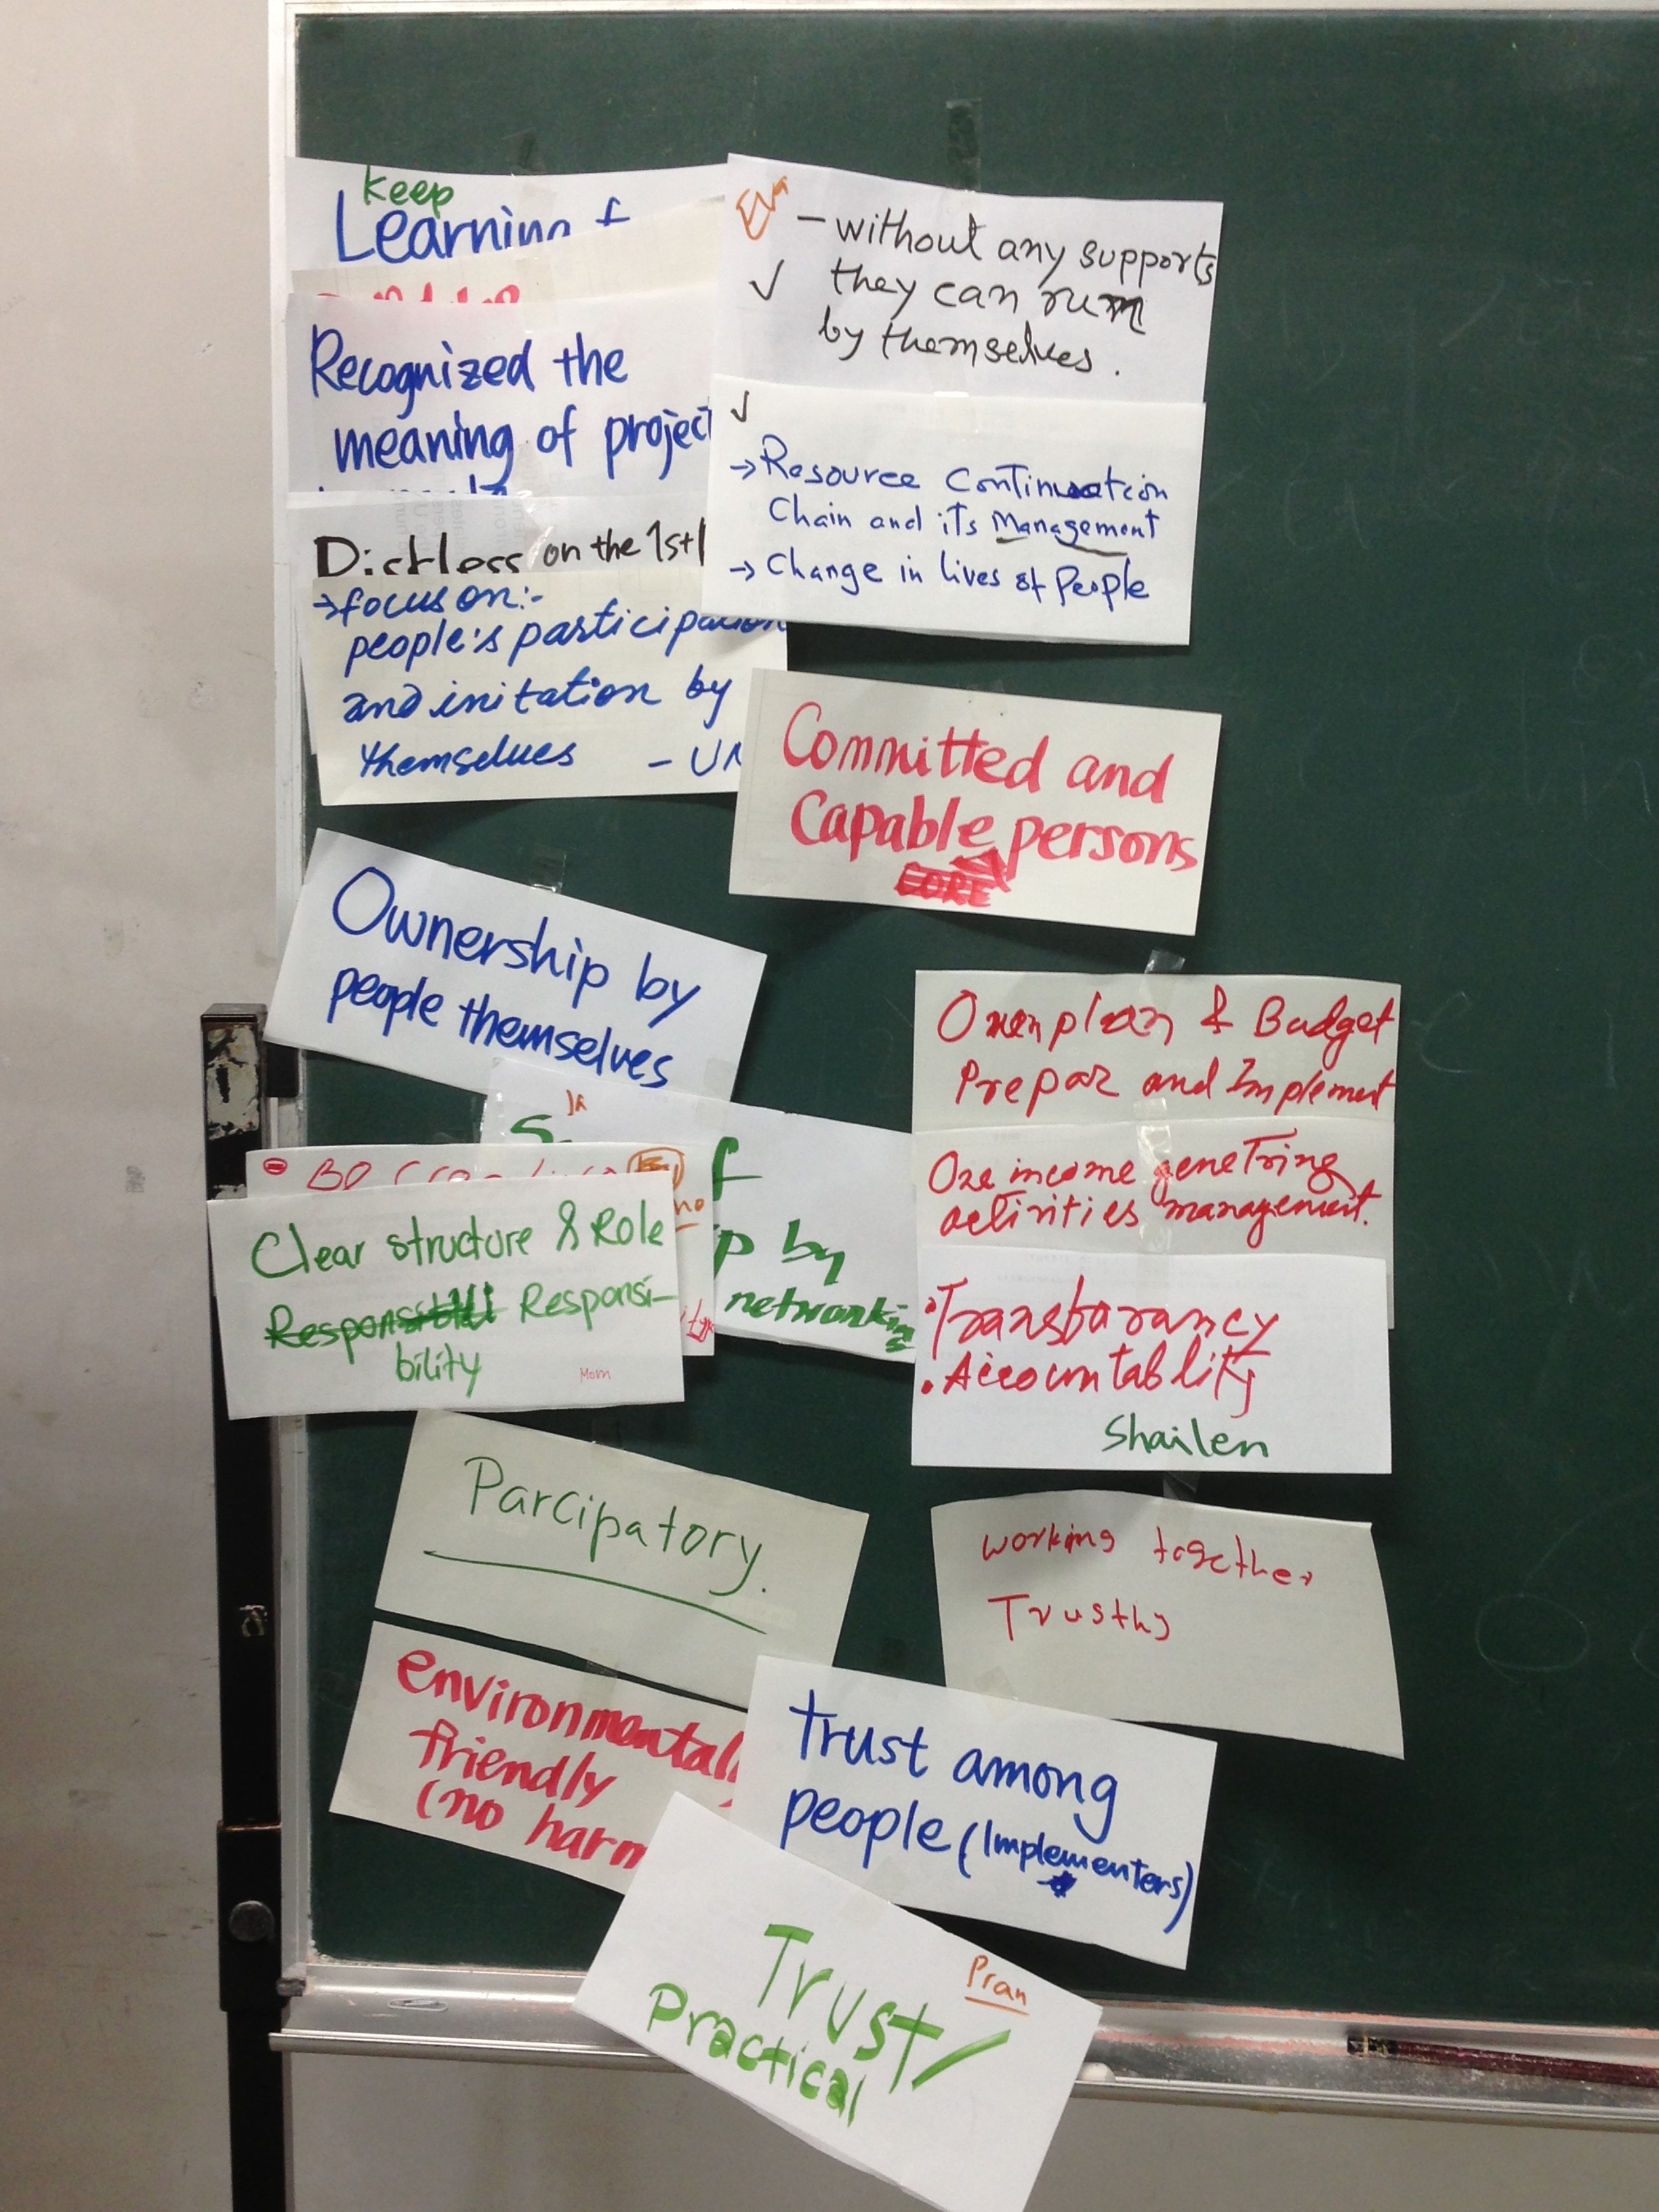 keep
Learning &
Recognized the
meaning of project
on the 1st
→ focus on:-
people's participation
and initation by
themselves - UN
Eva
- without any supports
✓ they can run
by themselves.
✓
→ Resource Continuation
Chain and its Management
→ Change in lives of People
Committed and
Capable persons
CORE
Ownership by
people themselves
p by
networking
Clear structure & Role
Responsi-
bility
Mom
plan & Budget
Prepar and Implement
income genetring
activities management.
• Transparancy
• Accountablity
Shailen
Parcipatory.
working together
Trusthy
environmentally
friendly
(no harm
trust among
people (Implementers)
Pran
Trust/
Practical